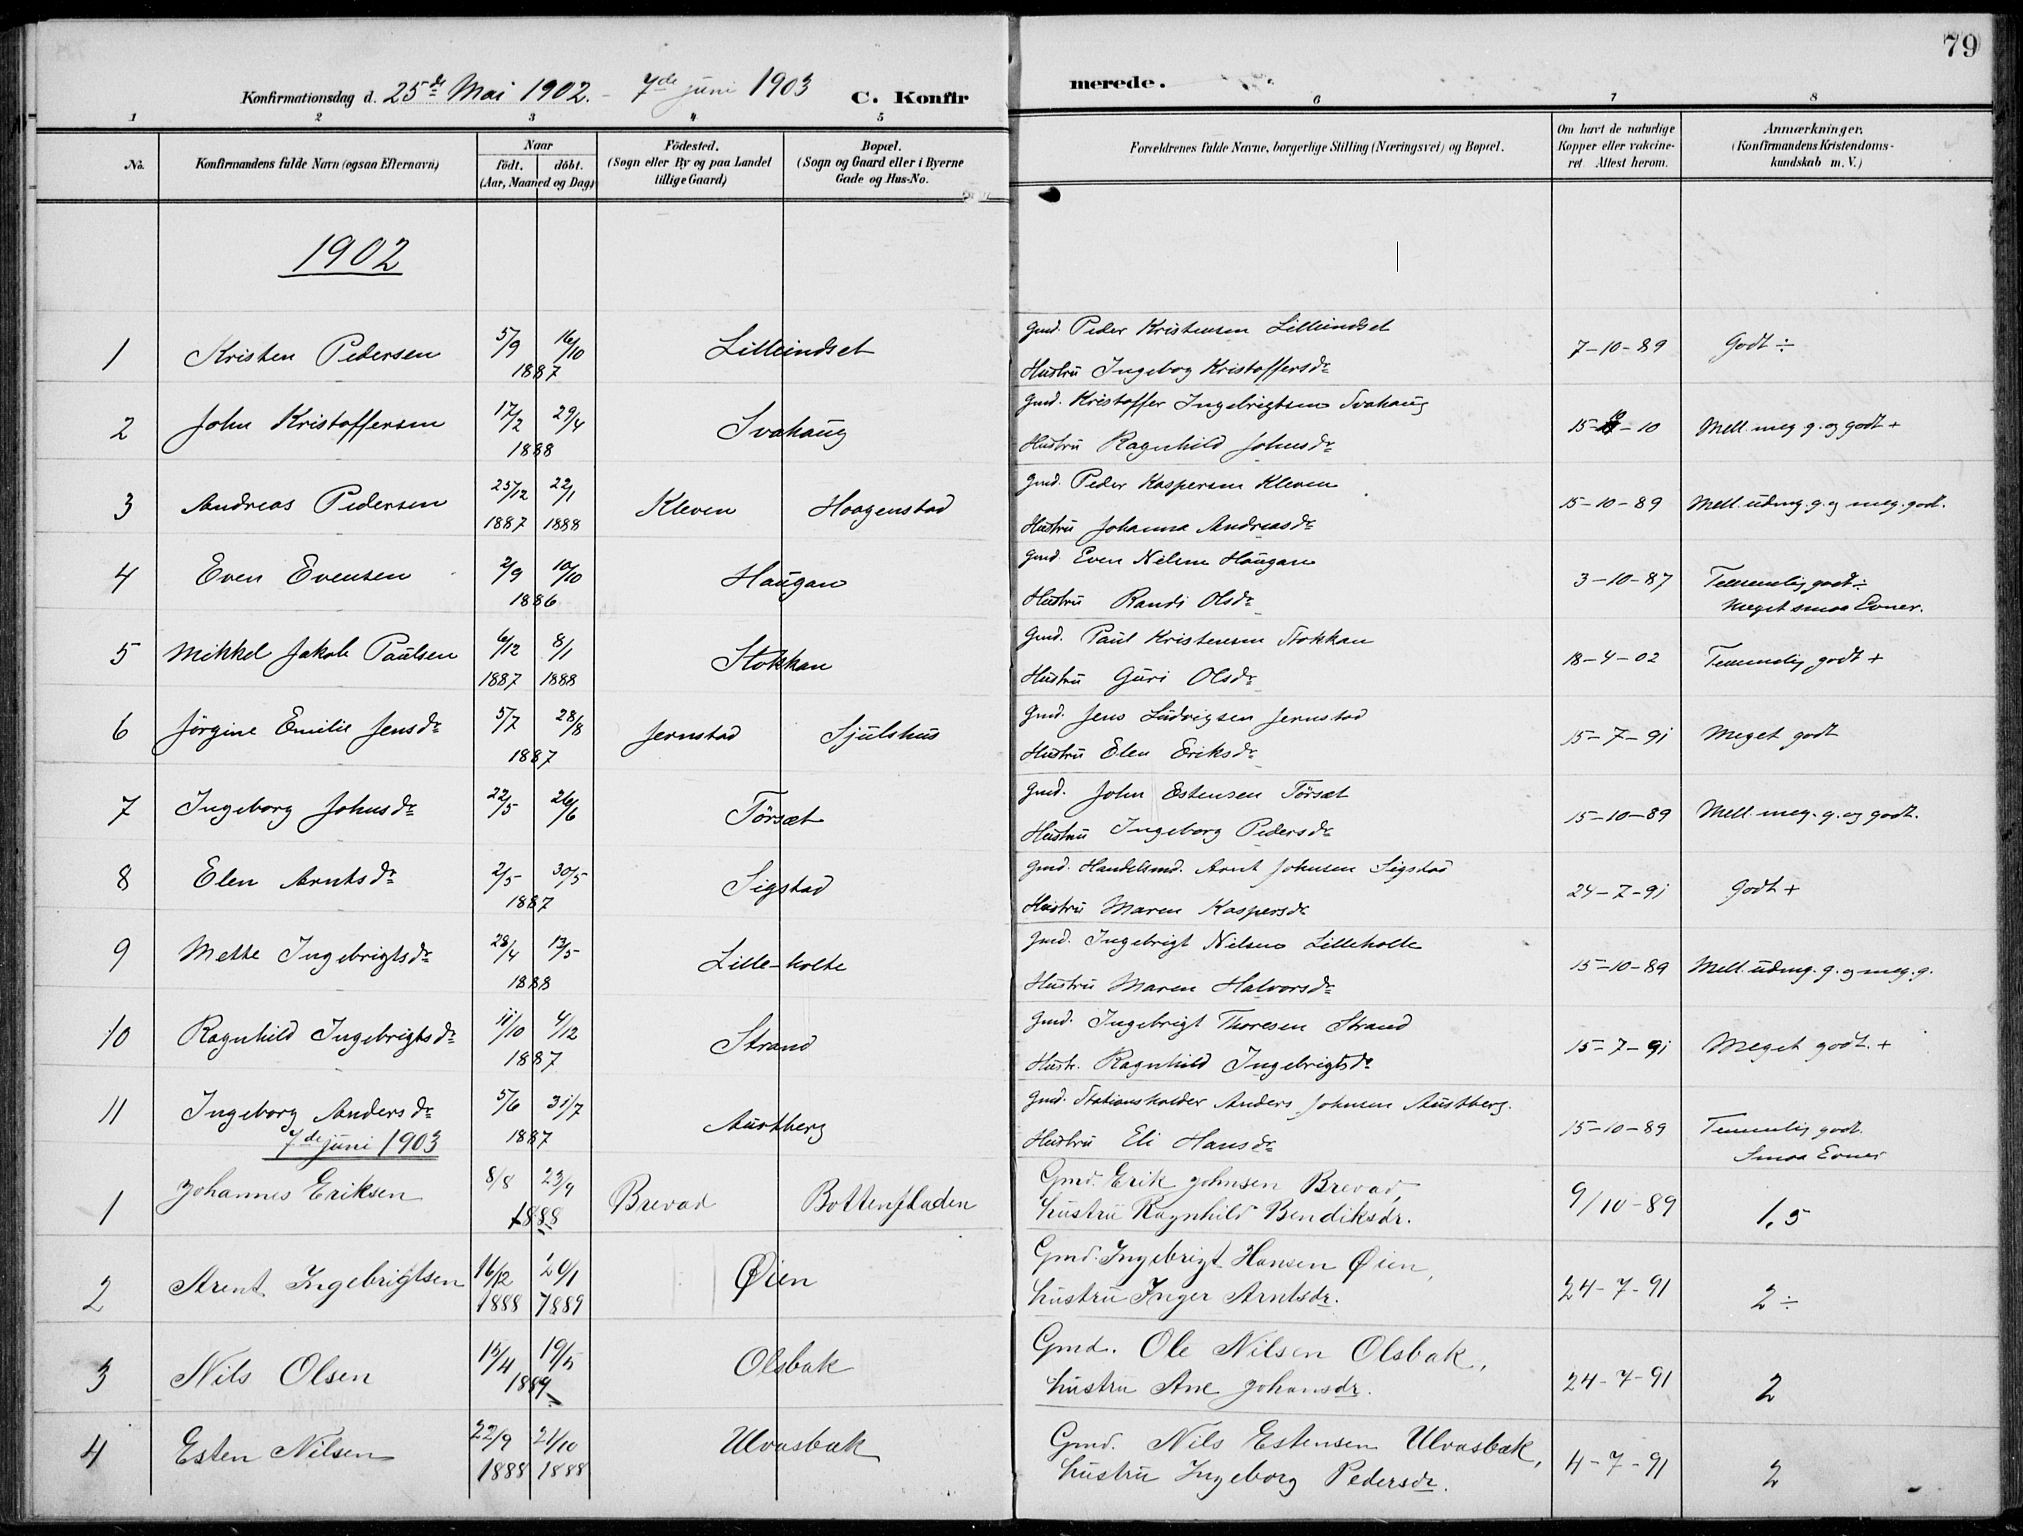 79
Konfirmationsdag d. 25de Mai 1902. - 7de juni 1903 C. Konfirmerede.
1 2 3 4 5 6 7 8
No. Konfirmandens fulde Navn (ogsaa Efternavn) Naar födt. döbt. (Aar, Maaned og Dag) Födested. (Sogn eller By og paa Landet tillige Gaard) Bopæl. (Sogn og Gaard eller i Byerne Gade og Hus-No. Forældrenes fulde Navne, borgerlige Stilling (Næringsvei) og Bopæl. Om havt de naturlige Kopper eller vakcineret. Attest herom. Anmærkninger. (Konfirmandens Kristendomskundskab m. V.)
1902
1 Kristen Pedersen 5/9 16/10 1887 Lilleindset Gmd. Peder Kristensen Lilleindset
Hustru Ingebog Kristoffersdr 7-10-89 Godt ÷
2 John Kristoffersen 17/2 29/4 1888 Svahaug Gmd. Kristoffer Ingebrigtsen Svahaug
Hustru Ragnhild Johnsdr 15- -10 Mell. meg g. og godt +
3 Andreas Pedersen 25/12 1887 22/1 1888 Kleven Haagenstad Gmd. Peder Kaspersen Kleven
Hustru Johanna Andreasdr 15-10-89 Mell. udmg. g. og meg. godt.
4 Even Evensen 2/9 10/10 1886 Haugan Gmd. Even Nilsen Haugan
Hustru Randi Olsdr 3-10-87 Temmelig godt ÷
Meget smaa Evner.
5 Mikkel Jakob Paulsen 6/12 1887 8/1 1888 Stokkan Gmd. Paul Kristensen Stokkan
Hustru Guri Olsdr 18-4-02 Temmelig godt +
6 Jørgine Emilie Jensdr 5/7 28/8 1887 Jernstad Sjulshus Gmd. Jens Ludvigsen Jernstad
Hustru Elen Eriksdr 15-7-91 Meget godt
7 Ingeborg Johnsdr 22/5 26/6 Törsæt Gmd. John Estensen Törsæt
Hustru Ingeborg Pedersdr 15-10-89 Mell. meg. g. og godt.
8 Elen Arntsdr 2/5 30/5 1887 Sigstad Gmd. Handelsmd. Arnt Johnsen Sigstad
Hustru Maren Kaspersdr 24-7-91 Godt +
9 Mette Ingebrigtsdr 28/4 13/5 1888 Lille-holte Gmd. Ingebrigt Nilsen Lilleholte
Hustru Maren Halvorsdr 15-10-89 Mell. udmg. g. og meg. g.
10 Ragnhild Ingebrigtsdr 11/10 4/12 1887 Strand Gmd. Ingebrigt Thoresen Strand
Hustr. Ragnhild Ingebrigtsdr 15-7-91 Meget godt. +
11 Ingeborg Andersdr 5/6 31/7 1887 Austberg Gmd. Stationsholder Anders Johnsen Austberg.
Hustru Eli Hansdr 15-10-89 Temmelig godt.
Smaa Evner
7de juni 1903
1 Johannes Eriksen 8/8 23/9 1888 Brevad Bottenfladen Gmd. Erik Johnsen Brevad,
hustru Ragnhild Bendiksdr. 9/10-89 1,5
2 Arent Ingebrigtsen 16/12 1888 20/1 1889 Øien Gmd. Ingebrigt Hansen Øien,
hustru Inger Arntsdr. 24-7-91 2 ÷
3 Nils Olsen 15/4 19/5 1889 Olsbak Gmd. Ole Nilsen Olsbak,
hustru Ane Johansdr. 24-7-91 2
4 Esten Nilsen 22/9 1888 21/10 1888 Ulvasbak Gmd. Nils Estensen Ulvasbak,
hustru Ingeborg Pedersdr. 4-7-91 2